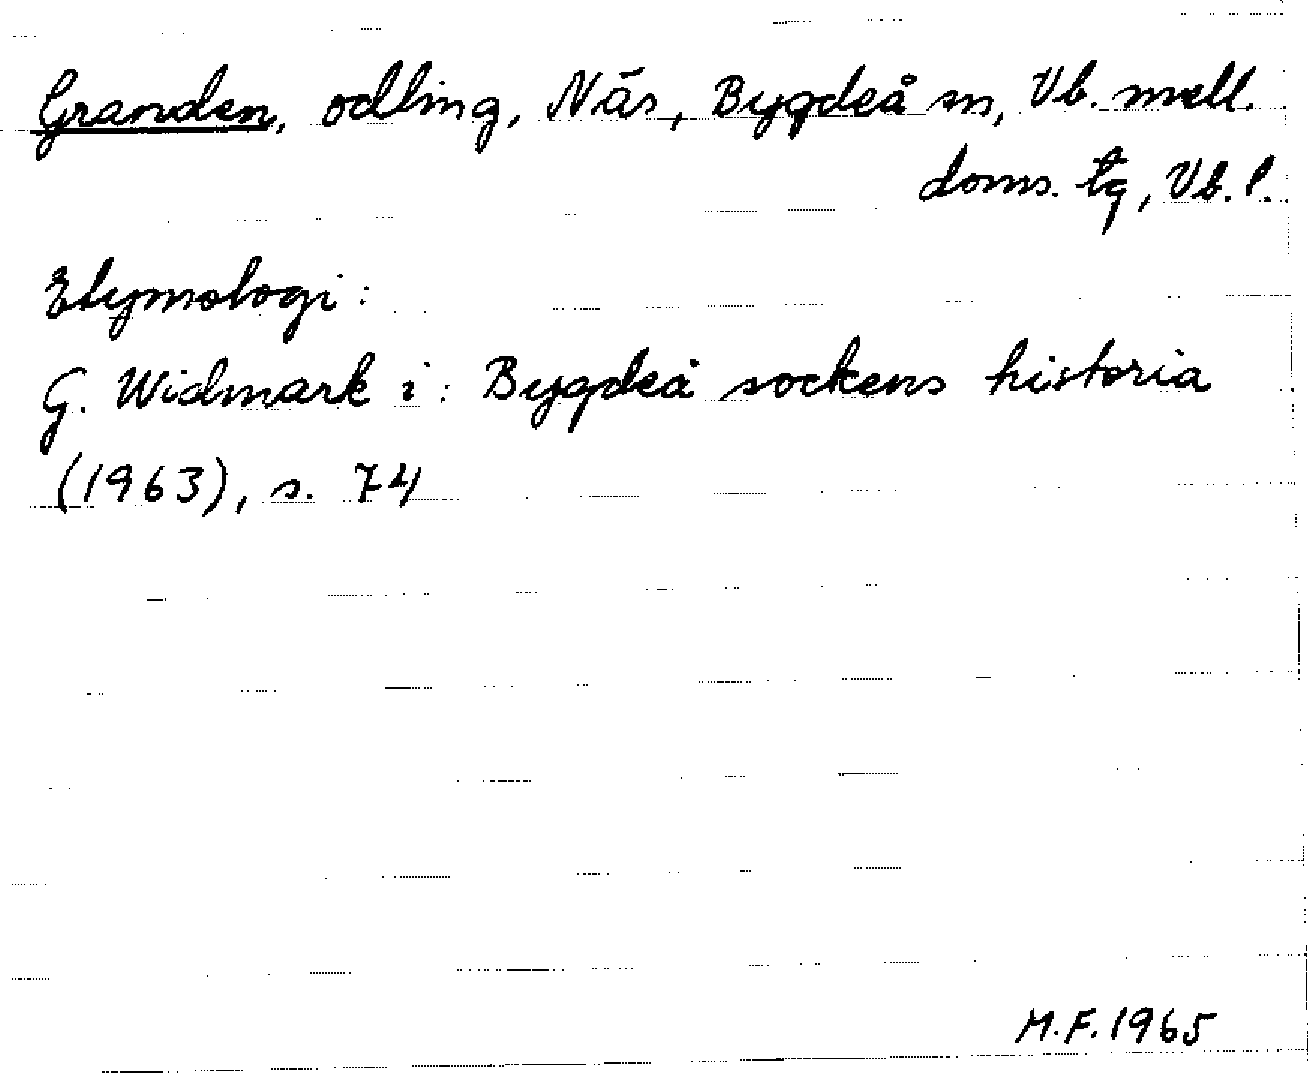 Granden, odling, Näs, Bygdeå sn, Vb. mell.
doms. tg, Vb. l.
Etymologi:
G. Widmark i: Bygdeå sockens historia
(1963), s. 74
M.F. 1965